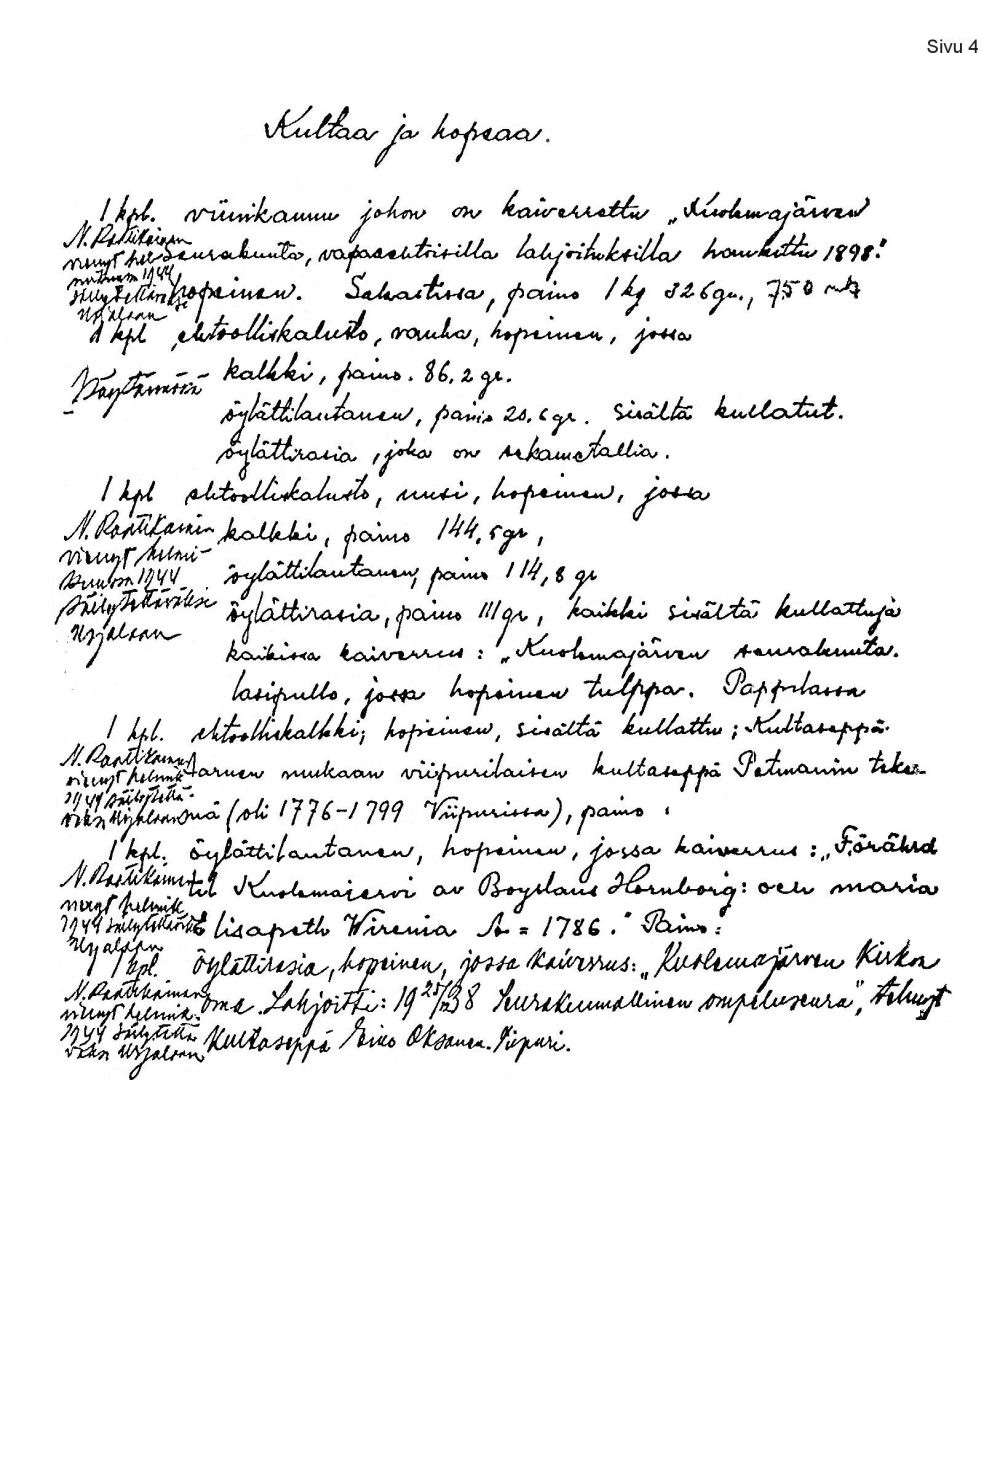 Sivu 4
Kultaa ja hopeaa.
1 kpl. viinikannu johon on kaiverrettu „Kuolemajärven
N. Raatikainen
vienyt hel-
seurakunta, vapaaehtoisilla lahjoituksilla hankittu 1898".
mikuun 1944
säilytettäväksi
Urjalaan
hopeinen. Sakastissa, paino 1 kg 326 gr., 750 mk
1 kpl ehtoolliskalusto, vanha, hopeinen, jossa
Näytännössä
kalkki, paino. 86.2 gr.
öylättilautanen, paino 20.6 gr. sisältä kullatut.
öylättirasia, joka on sekametallia.
1 kpl ehtoolliskalusto, uusi, hopeinen, jossa
N. Raatikainen
vienyt helmi-
kuussa 1944
säilytettäväksi
Urjalaan
kalkki, paino 144,5 gr,
öylättilautanen, paino 114,8 gr
öylättirasia, paino 111 gr, kaikki sisältä kullattuja
kaikissa kaiverrus: „Kuolemajärven seurakunta.
lasipullo, jossa hopeinen tulppa. Pappilassa
1 kpl. ehtoolliskalkki, hopeinen, sisältä kullattu; Kultaseppä
N. Raatikainen
vienyt helmik
1944 säilytettä-
väksi Urjalaan
Tarnen mukaan viipurilaisen kultaseppä Petmanin teke-
mä (oli 1776-1799 Viipurissa), paino :
1 kpl. öylättilautanen, hopeinen, jossa kaiverrus: „Förährd
N. Raatikainen
vienyt helmik
1944 säilytettäväksi
Urjalaan
til Kuolemajervi av Boyslaus Hornborg: och maria
Elisapeth Wirenia A = 1786." Paino:
1 kpl. öylättirasia, hopeinen, jossa kaiverrus: „Kuolemajärven Kirkon
N. Raatikainen
vienyt helmik.
1944 säilytettä
väksi Urjalaan
oma. Lahjoitti: 19 25/III 38 Seurakunnallinen ompeluseura", tehnyt
Kultaseppä Eino Oksanen. Viipuri.